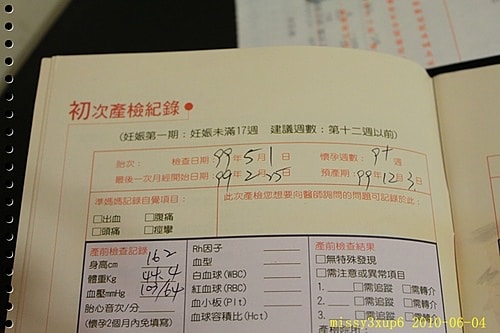 初次產檢紀錄●
(妊娠第一期：妊娠未滿17週　建議週數：第十二週以前)
胎次：　檢查日期：99年5月1日　懷孕週數：9+週
最後一次月經開始日期：99年2月25日　預產期：99年12月3日
準媽媽記錄自覺項目：
□出血　□腹痛
□頭痛　□痙攣
此次產檢您想要向醫師詢問的問題可記錄於此：
產前檢查記錄
身高cm 162
體重Kg 44.4
血壓mmHg 107/64
胎心音次/分
(懷孕2個月內免填寫)
Rh因子
血型
白血球(WBC)
紅血球(RBC)
血小板(Plt)
血球容積比(Hct)
產前檢查結果
□無特殊發現
□需注意或異常項目
1. □需追蹤 □需轉介
2. □需追蹤 □需轉介
3. □需追蹤 □需轉介
missy3xup6 2010-06-04